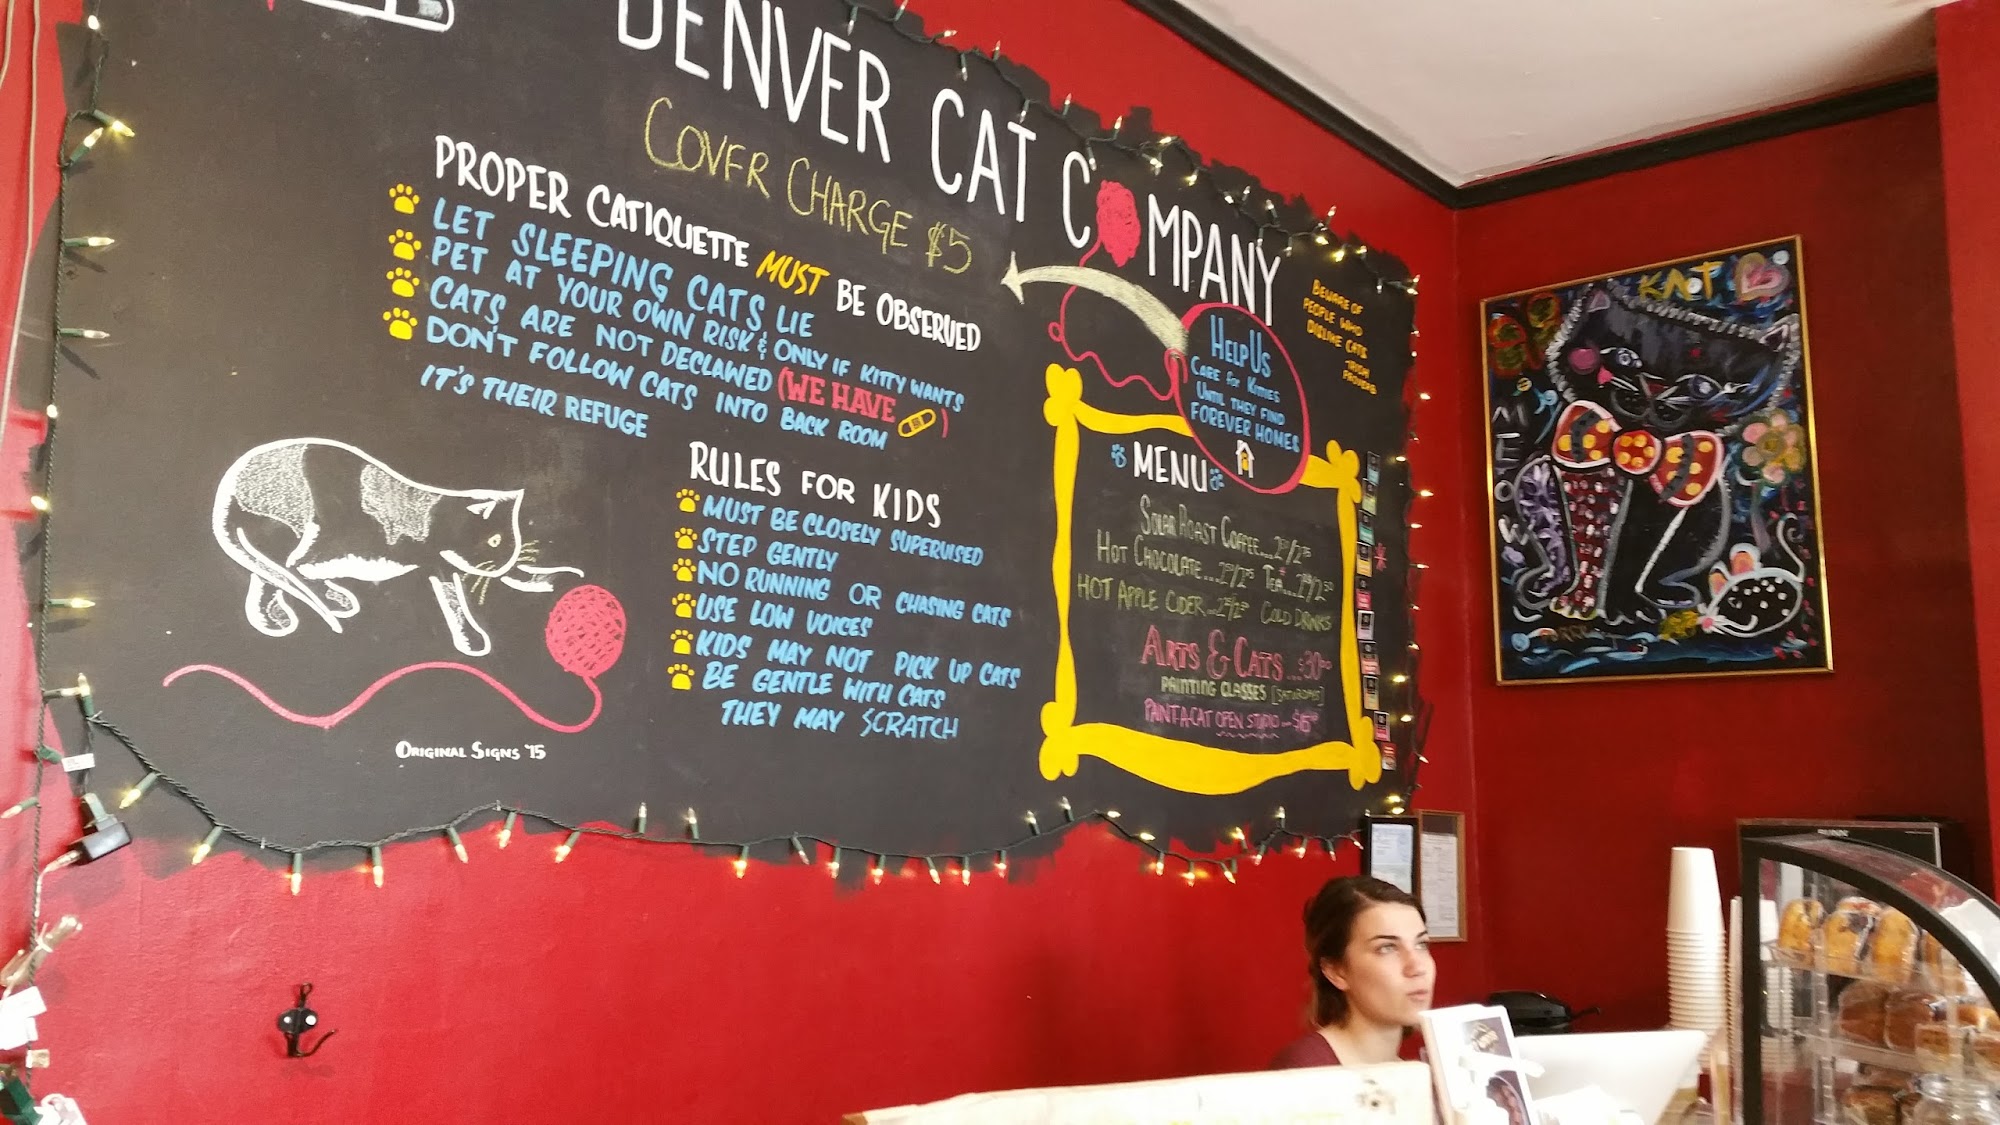 DENVER CAT COMPANY
COVER CHARGE $5
PROPER CATIQUETTE MUST BE OBSERVED
LET SLEEPING CATS LIE
PET AT YOUR OWN RISK & ONLY IF KITTY WANTS
CATS ARE NOT DECLAWED (WE HAVE )
DON'T FOLLOW CATS INTO BACK ROOM
IT'S THEIR REFUGE
RULES FOR KIDS
MUST BE CLOSELY SUPERVISED
STEP GENTLY
NO RUNNING OR CHASING CATS
USE LOW VOICES
KIDS MAY NOT PICK UP CATS
BE GENTLE WITH CATS
THEY MAY SCRATCH
ORIGINAL SIGNS '15
BEWARE OF
PEOPLE WHO
DISLIKE CATS
-IRISH
PROVERB
HELP US
CARE for KITTIES
UNTIL THEY FIND
FOREVER HOMES
MENU
SOLAR ROAST COFFEE....
HOT CHOCOLATE... TEA...
HOT APPLE CIDER... COLD DRINKS
ARTS & CATS ...$30.00
PAINTING CLASSES [SATURDAYS]
PAINT-A-CAT OPEN STUDIO...$15.00
KAT
MEOW
BUNN